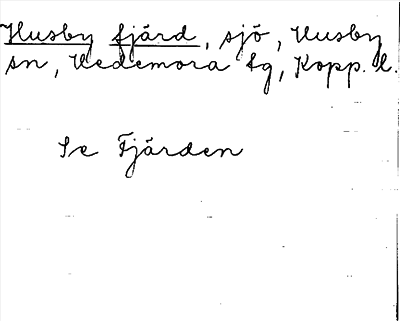 Husby fjärd, sjö, Husby
sn, Hedemora tg, Kopp. l.
Se Fjärden